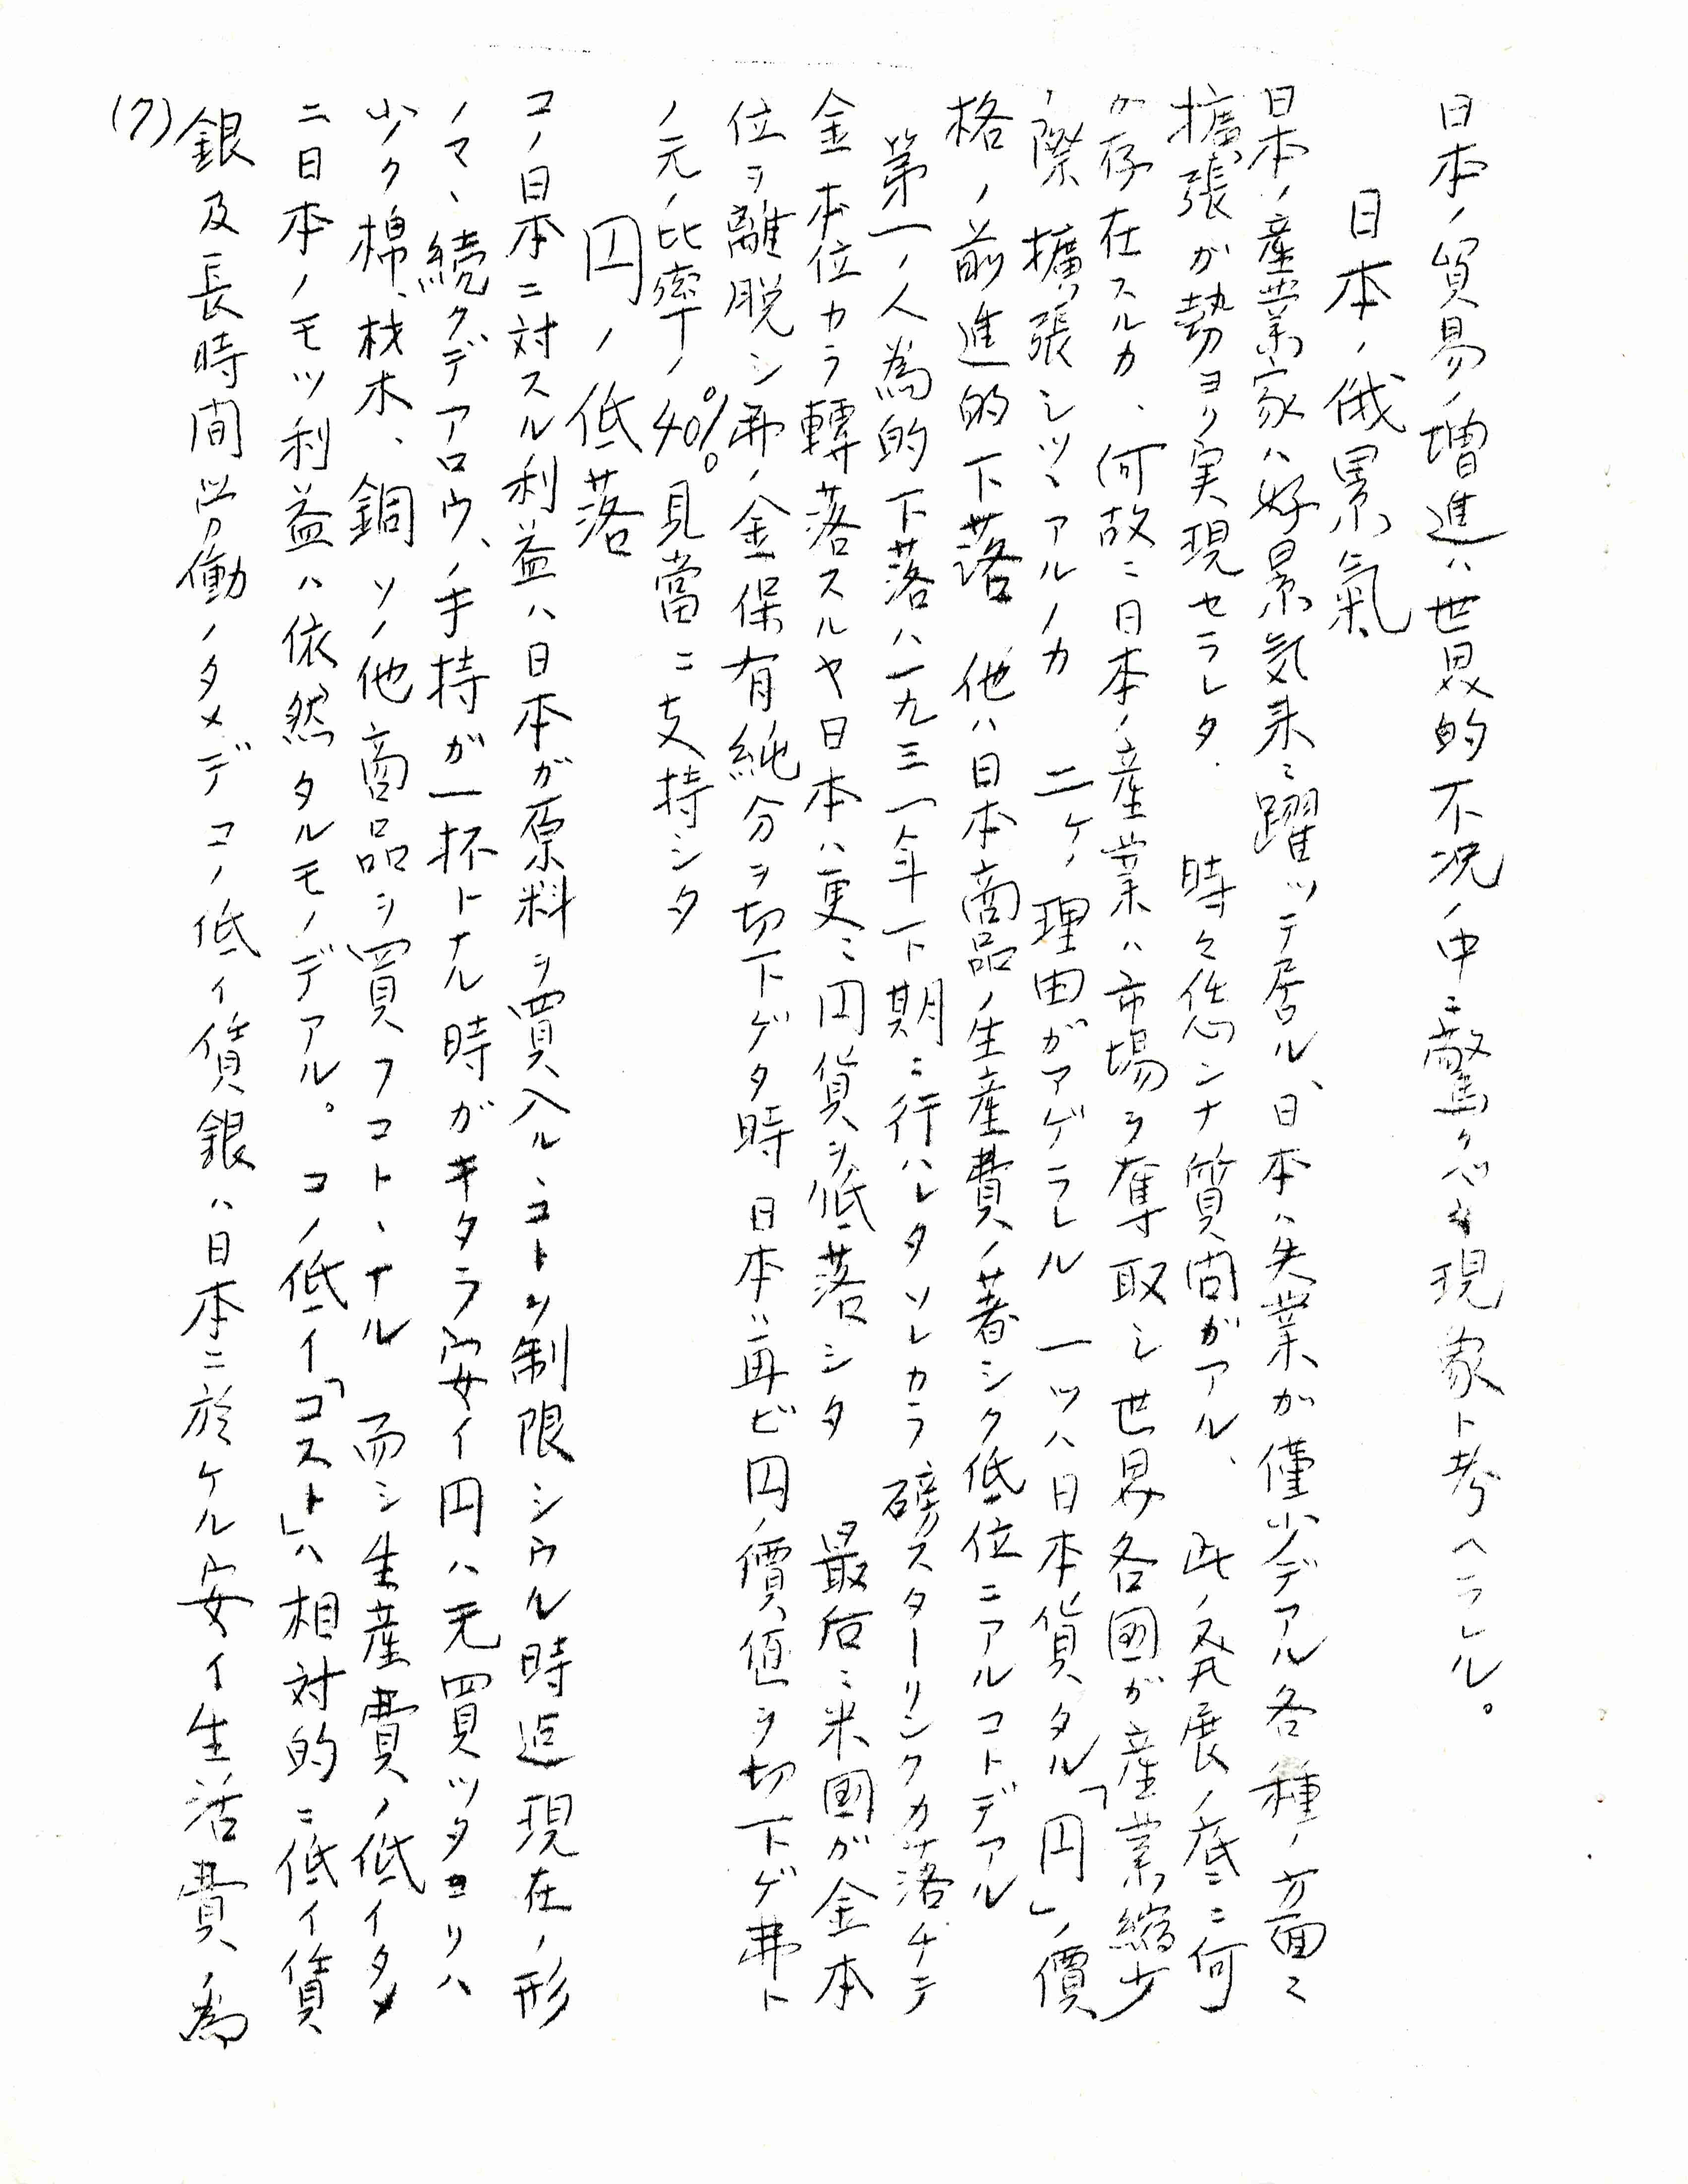 日本ノ貿易ノ増進ハ世界的不況ノ中ニ驚クベキ現象ト考ヘラレル。
日本ノ俄景氣
日本ノ産業家ハ好景気来ニ躍ッテ居ル、日本ハ失業が僅少デアル各種ノ方面ニ
擴張が勢ヨリ実現セラレタ. 時々恁ンナ質問ガアル、此ノ発展ノ底ニ何
ガ存在スルカ、何故ニ日本ノ産業ハ市場ヲ奪取シ世界各国が産業縮少
ノ際擴張シツヽアルノカ 二ケノ理由ガアゲラレル 一ツハ日本貨タル「円」ノ價
格ノ前進的下落 他ハ日本商品ノ生産費ノ著シク低位ニアルコトデアル
第一ノ人為的下落ハ一九三一年下期ニ行ハレタソレカラ磅スターリングガ落チテ
金本位カラ轉落スルヤ日本ハ更ニ円貨ヲ低落シタ 最后ニ米國が金本
位ヲ離脱シ弗ノ金保有純分ヲ切下ゲタ時日本ハ再ビ円ノ價値ヲ切下ゲ弗ト
ノ元ノ比率ノ40%見當ニ支持シタ
円ノ低落
コノ日本ニ対スル利益ハ日本が原料ヲ買入ルヽコトヲ制限シウル時迄現在ノ形
ノマヽ続クデアロウ、ノ手持が一杯トナル時ガキタラ安イ円ハ元買ツタヨリハ
少ク棉、材木、銅ソノ他商品ヲ買フコトヽナル 而シ生産費ノ低イタメ
ニ日本ノモツ利益ハ依然タルモノデアル。 コノ低イ「コスト」ハ相対的ニ低イ賃
銀及長時間労働ノタメデコノ低イ賃銀ハ日本ニ於ケル安イ生活費ノ為
(7)